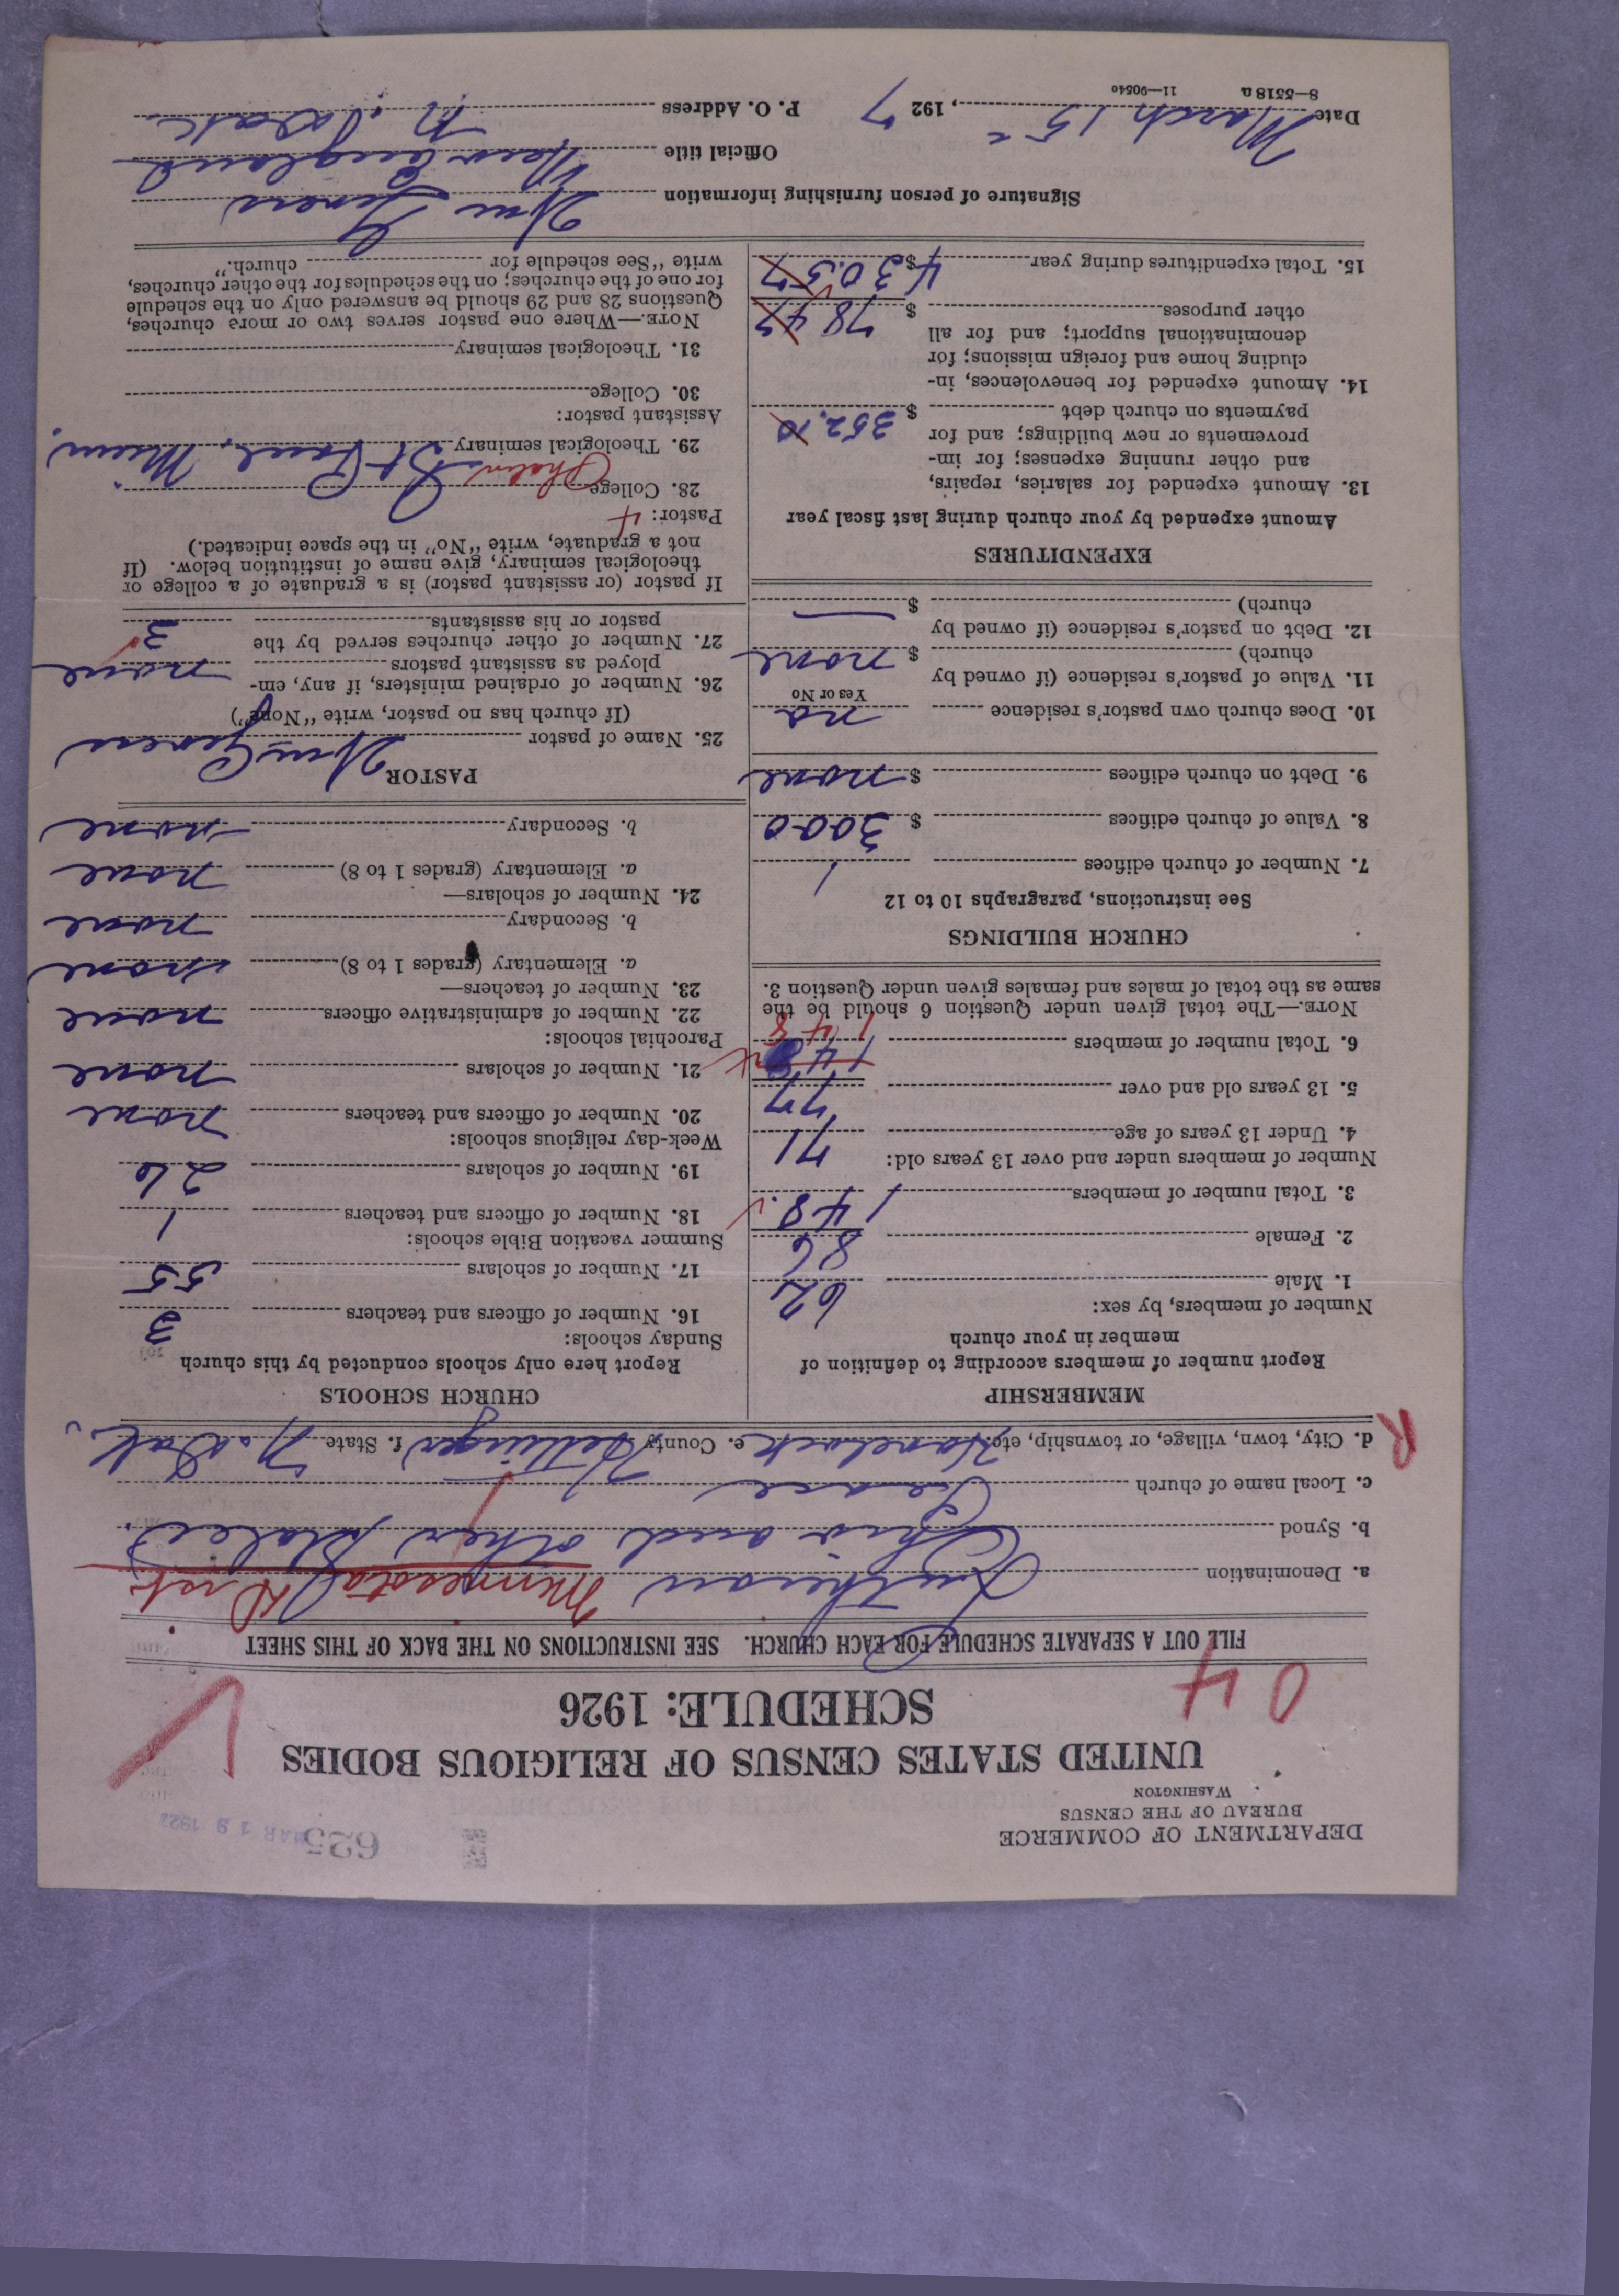 DEPARTMENT OF COMMERCE
BUREAU OF THE CENSUS
WASHINGTON
625
MAR 19 1927
UNITED STATES CENSUS OF RELIGIOUS BODIES
SCHEDULE: 1926
04
FILL OUT A SEPARATE SCHEDULE FOR EACH CHURCH. SEE INSTRUCTIONS ON THE BACK OF THIS SHEET
a. Denomination Lutheran Minnesota Dist.
b. Synod Ohio and other States
c. Local name of church Peace
d. City, town, village, or township, etc. Havelock e. County Hettinger f. State N. Dak.
R
MEMBERSHIP
Report number of members according to definition of
member in your church
Number of members, by sex:
1. Male 62
2. Female 86
3. Total number of members 148
Number of members under and over 13 years old:
4. Under 13 years of age 71
5. 13 years old and over 77
6. Total number of members 148
148
NOTE.—The total given under Question 6 should be the
same as the total of males and females given under Question 3.
CHURCH BUILDINGS
See instructions, paragraphs 10 to 12
7. Number of church edifices 1
8. Value of church edifices $ 3000
9. Debt on church edifices $ none
10. Does church own pastor's residence no
Yes or No
11. Value of pastor's residence (if owned by
church) $ none
12. Debt on pastor's residence (if owned by
church) $ —
EXPENDITURES
Amount expended by your church during last fiscal year
13. Amount expended for salaries, repairs,
and other running expenses; for im-
provements or new buildings; and for
payments on church debt $ 352.10
14. Amount expended for benevolences, in-
cluding home and foreign missions; for
denominational support; and for all
other purposes $ 78 47
15. Total expenditures during year $ 430.57
CHURCH SCHOOLS
Report here only schools conducted by this church
Sunday schools:
16. Number of officers and teachers 3
17. Number of scholars 55
Summer vacation Bible schools:
18. Number of officers and teachers 1
19. Number of scholars 26
Week-day religious schools:
20. Number of officers and teachers none
21. Number of scholars none
Parochial schools:
22. Number of administrative officers none
23. Number of teachers—
a. Elementary (grades 1 to 8) none
b. Secondary none
24. Number of scholars—
a. Elementary (grades 1 to 8) none
b. Secondary none
PASTOR
25. Name of pastor Wm
(If church has no pastor, write "None")
26. Number of ordained ministers, if any, em-
ployed as assistant pastors none
27. Number of other churches served by the
pastor or his assistants 3
If pastor (or assistant pastor) is a graduate of a college or
theological seminary, give name of institution below. (If
not a graduate, write "No" in the space indicated.)
Pastor: 4
28. College
29. Theological seminary St. Paul, Minn.
Assistant pastor:
30. College
31. Theological seminary
NOTE.—Where one pastor serves two or more churches,
Questions 28 and 29 should be answered only on the schedule
for one of the churches; on the schedules for the other churches,
write "See schedule for church."
Signature of person furnishing information Wm
Official title New England
Date March 15, 1927 P. O. Address N. Dak.
8—5318 a 11—90540